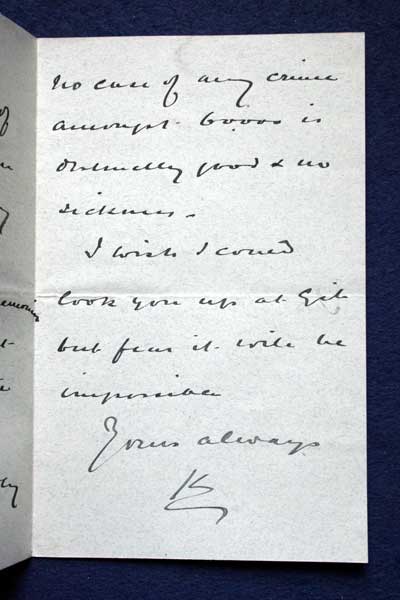 no case of any crime
amongst 6,000 is
distinctly good & no
sickness.
I wish I could
look you up at Gib
but fear it will be
impossible
Yours always
K